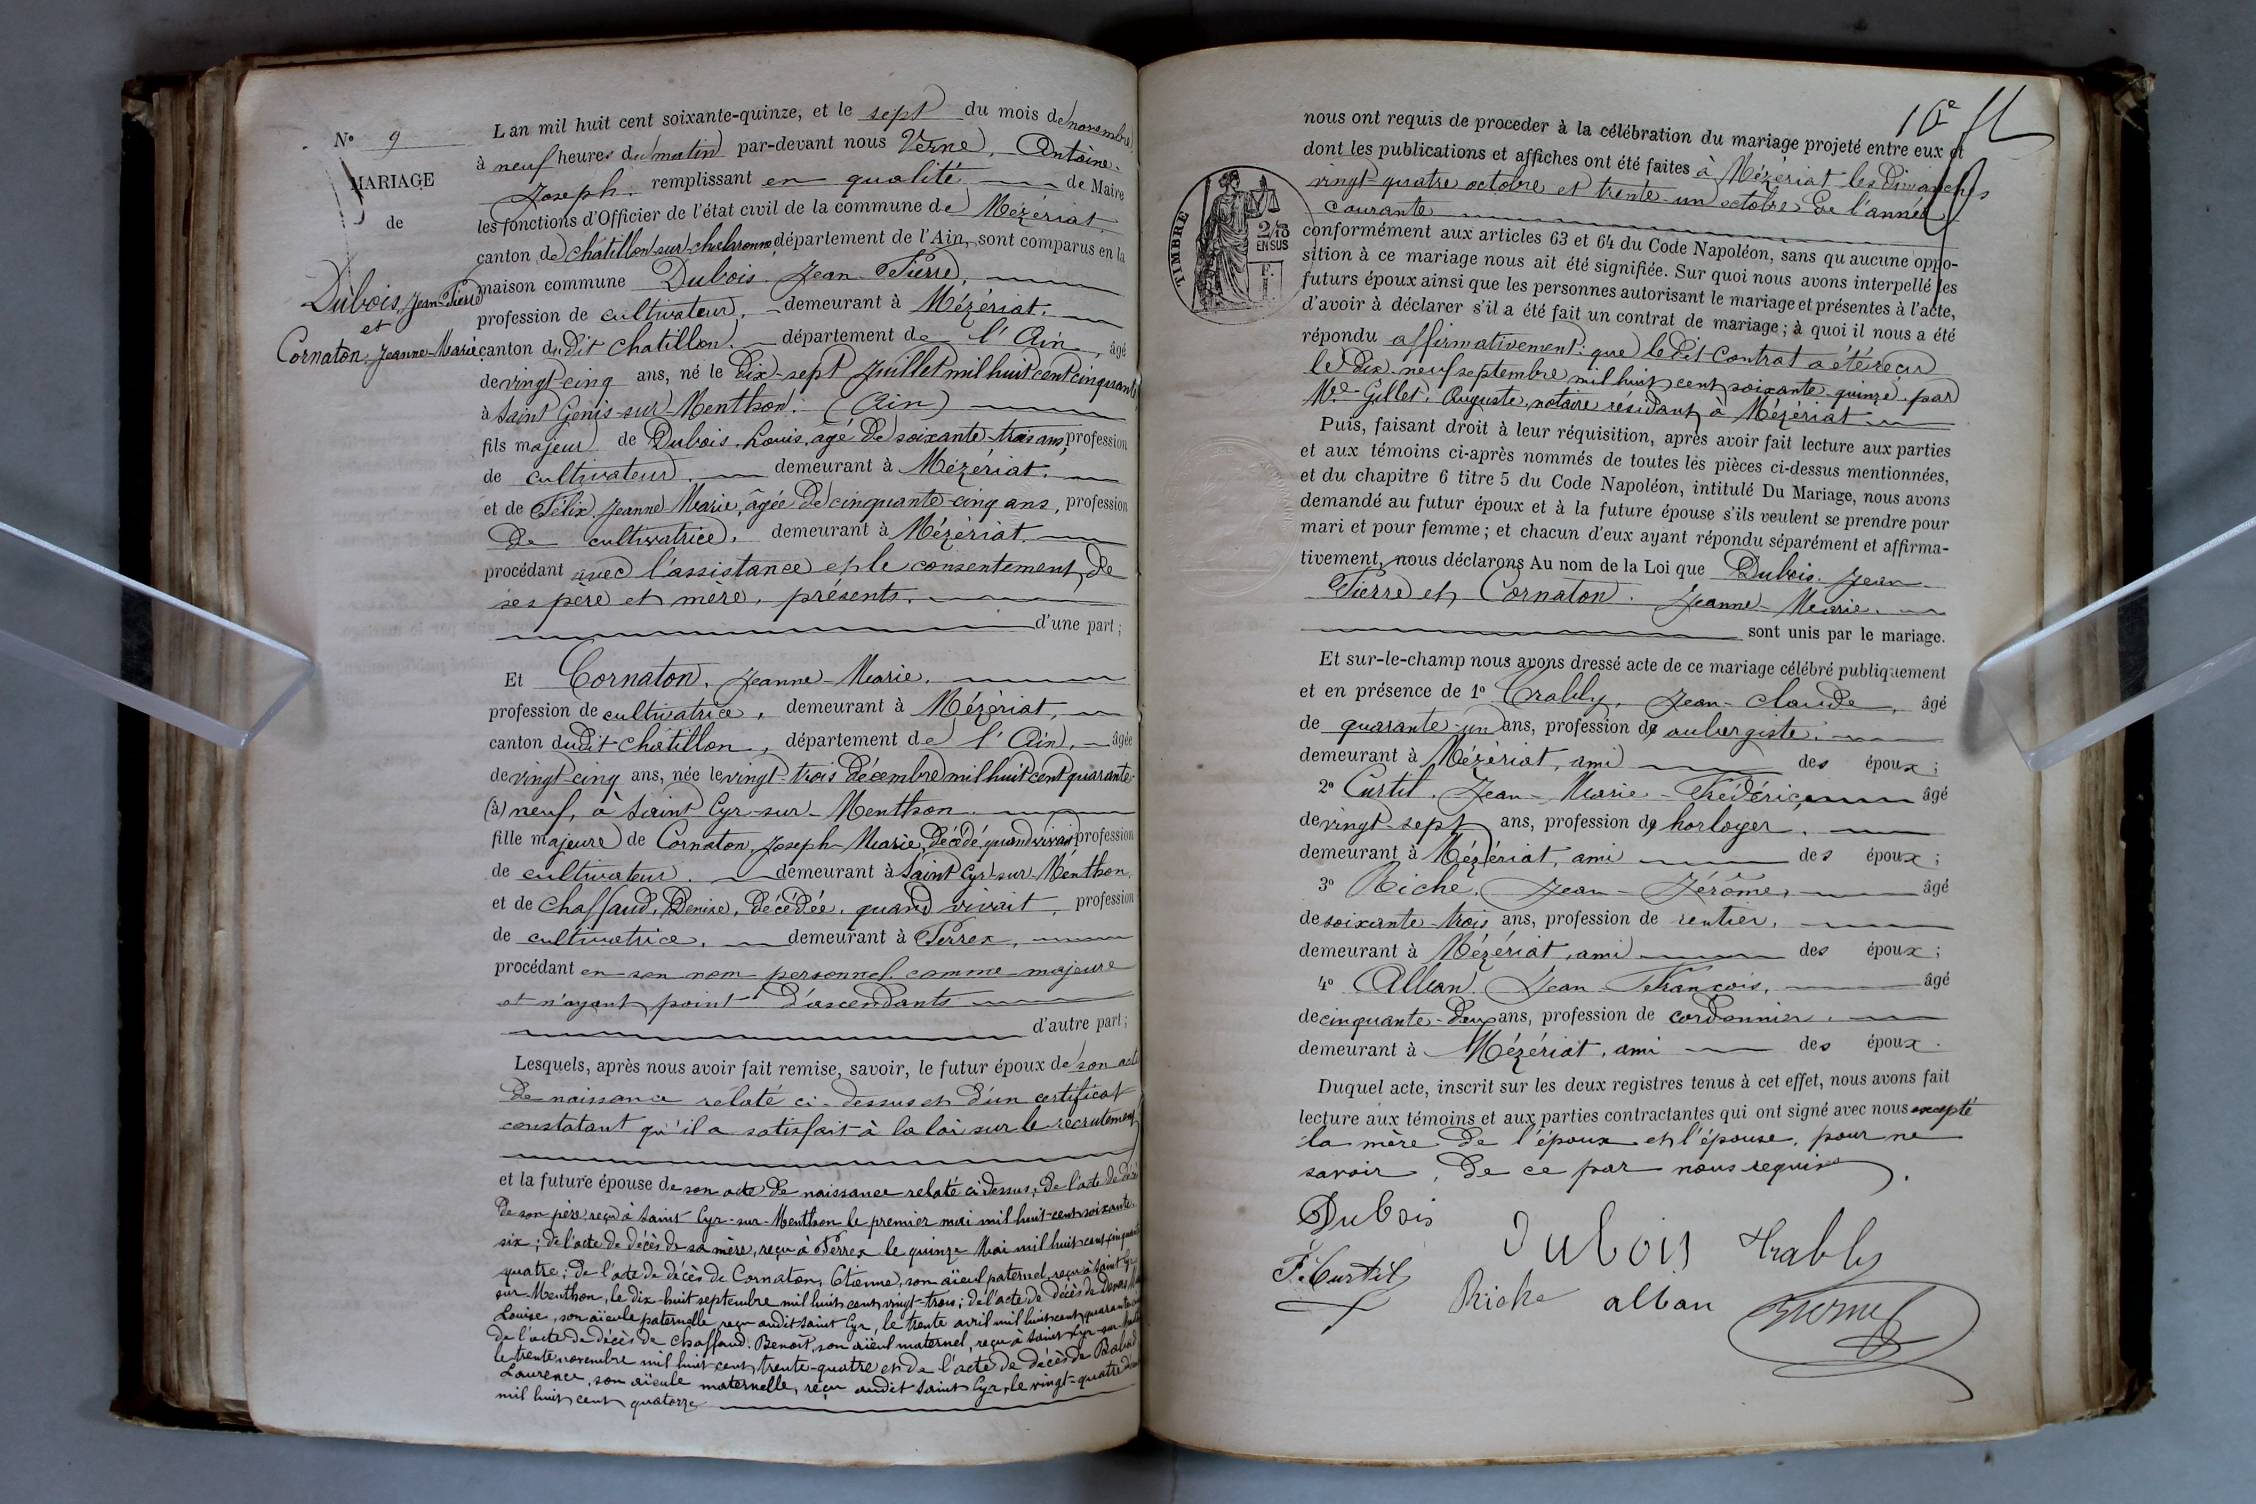 N° 9
MARIAGE
de
Dubois, Jean-Pierre
et
Cornaton, Jeanne-Marie
Lan mil huit cent soixante-quinze, et le sept du mois de novembre
à neuf heures du matin par-devant nous Verne, Antoine
Joseph. remplissant en qualité de Maire
les fonctions d'Officier de l'état civil de la commune de Mézériat
canton de Châtillon-sur-Chalaronne département de l'Ain, sont comparus en la
maison commune Dubois. Jean-Pierre,
profession de cultivateur, demeurant à Mézériat.
canton dudit Chatillon. département de l'Ain, âgé
de vingt-cinq ans, né le dix-sept Juillet mil huit cent cinquante
à Saint Genis-sur-Menthon. (Ain)
fils majeur de Dubois. Louis, âgé de soixante-trois ans, profession
de cultivateur. demeurant à Mézériat.
et de Félix, Jeanne Marie, âgée de cinquante-cinq ans, profession
de cultivatrice, demeurant à Mézériat.
procédant avec l'assistance et le consentement de
ses père et mère, présents.
d'une part;
Et Cornaton, Jeanne-Marie.
profession de cultivatrice, demeurant à Mézériat,
canton dudit Châtillon, département de l'Ain, âgée
de vingt-cinq ans, née le vingt-trois décembre mil huit cent quarante-
(à) neuf, à Saint Cyr-sur-Menthon
fille majeure de Cornaton, Joseph-Marie, décédé, quand vivait profession
de cultivateur. demeurant à Saint Cyr-sur-Menthon,
et de Chaffaud, Denise, décédée, quand vivait, profession
de cultivatrice, demeurant à Perrex,
procédant en son nom personnel comme majeure
et n'ayant point d'ascendants
d'autre part;
Lesquels, après nous avoir fait remise, savoir, le futur époux de son acte
de naissance relaté ci-dessus et d'un certificat
constatant qu'il a satisfait à la loi sur le recrutement
et la future épouse de son acte de naissance relaté ci-dessus; de l'acte de décès
de son père, reçu à Saint Cyr-sur-Menthon le premier mai mil huit cent soixante-
six; de l'acte de décès de sa mère, reçu à Perrex le quinze Mai mil huit cent cinquante
quatre; de l'acte de décès de Cornaton, Etienne, son aïeul paternel, reçu à Saint Cyr
sur-Menthon, le dix-huit septembre mil huit cent vingt-trois; de l'acte de décès de
Louise, son aïeule paternelle reçu audit Saint Cyr, le trente avril mil huit cent quarante
de l'acte de décès de Chaffaud. Benoît, son aïeul maternel, reçu à Saint Cyr-sur-Menthon
le trente novembre mil huit cent trente-quatre et de l'acte de décès de
Laurence, son aïeule maternelle, reçu audit Saint Cyr, le vingt-quatre
mil huit cent quatorze
16e
nous ont requis de proceder à la célébration du mariage projeté entre eux et
dont les publications et affiches ont été faites à Mézériat les dimanches
vingt-quatre octobre et trente-un octobre de l'année
courante
TIMBRE
2/10
EN SUS
conformément aux articles 63 et 64 du Code Napoléon, sans qu aucune oppo-
sition à ce mariage nous ait été signifiée. Sur quoi nous avons interpellé les
futurs époux ainsi que les personnes autorisant le mariage et présentes à l'acte,
d'avoir à déclarer s'il a été fait un contrat de mariage; à quoi il nous a été
répondu affirmativement: que ledit Contrat a été reçu
le dix-neuf septembre mil huit cent soixante-quinze, par
Me Gillet, Auguste, notaire résidant à Mézériat
Puis, faisant droit à leur réquisition, après avoir fait lecture aux parties
et aux témoins ci-après nommés de toutes les pièces ci-dessus mentionnées,
et du chapitre 6 titre 5 du Code Napoléon, intitulé Du Mariage, nous avons
demandé au futur époux et à la future épouse s'ils veulent se prendre pour
mari et pour femme; et chacun d'eux ayant répondu séparément et affirma-
tivement, nous déclarons Au nom de la Loi que Dubois. Jean-
Pierre et Cornaton. Jeanne-Marie.
sont unis par le mariage.
Et sur-le-champ nous avons dressé acte de ce mariage célébré publiquement
et en présence de 1° Trably, Jean-Claude, âgé
de quarante-un ans, profession de aubergiste.
demeurant à Mézériat, ami des époux;
2° Curtil. Jean-Marie-Frédéric, âgé
de vingt-sept ans, profession de horloger.
demeurant à Mézériat, ami des époux;
3° Riche. Jean-Jérôme, âgé
de soixante-trois ans, profession de rentier,
demeurant à Mézériat, ami des époux;
4° Alban. Jean François, âgé
de cinquante-deux ans, profession de cordonnier.
demeurant à Mézériat, ami des époux.
Duquel acte, inscrit sur les deux registres tenus à cet effet, nous avons fait
lecture aux témoins et aux parties contractantes qui ont signé avec nous excepté
la mère de l'époux et l'épouse, pour ne
savoir, de ce par nous requis.
Dubois Dubois Trably
F. Curtil Riche alban Verne